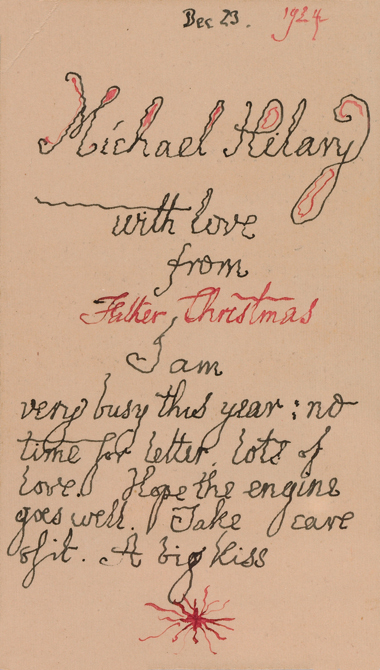 Dec 23. 1924
Michael Hilary
with love
from
Father Christmas
I am
very busy this year: no
time for letter. lots of
love. Hope the engine
goes well. Take care
of it. A big kiss